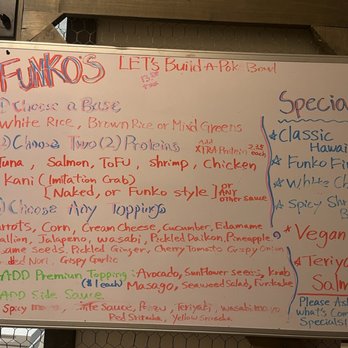 FUNKO'S
LET'S Build-A-Poke Bowl
Choose a Base
White Rice, Brown Rice or Mixed Greens
Choose Two (2) Proteins Add XTRA Protein each
Tuna, Salmon, ToFu, shrimp, Chicken
Kani (Imitation Crab)
[Naked, or Funko style] or ANY other sauce
Choose Any Toppings
arrots, Corn, Cream Cheese, Cucumber, Edamame
allion, Jalapeno, wasabi, Pickled Daikon, Pineapple
same seeds, Pickled Ginger, Cherry Tomato Crispy Onion
Nori, Crispy Garlic
ADD Premium Topping: Avocado, Sunflower seeds, Krab
($1 each) Masago, Seaweed Salad, Furikake
ADD Side Sauce
Spicy mayo, Ponzu, Teriyaki, wasabi mayo
Red Sriracha, Yellow Sriracha
Specia
Classic
Hawaii
Funko Fir
White Ch
Spicy Shr
B
Vegan
Teriya
Salm
Please As
what's Com
Specials!